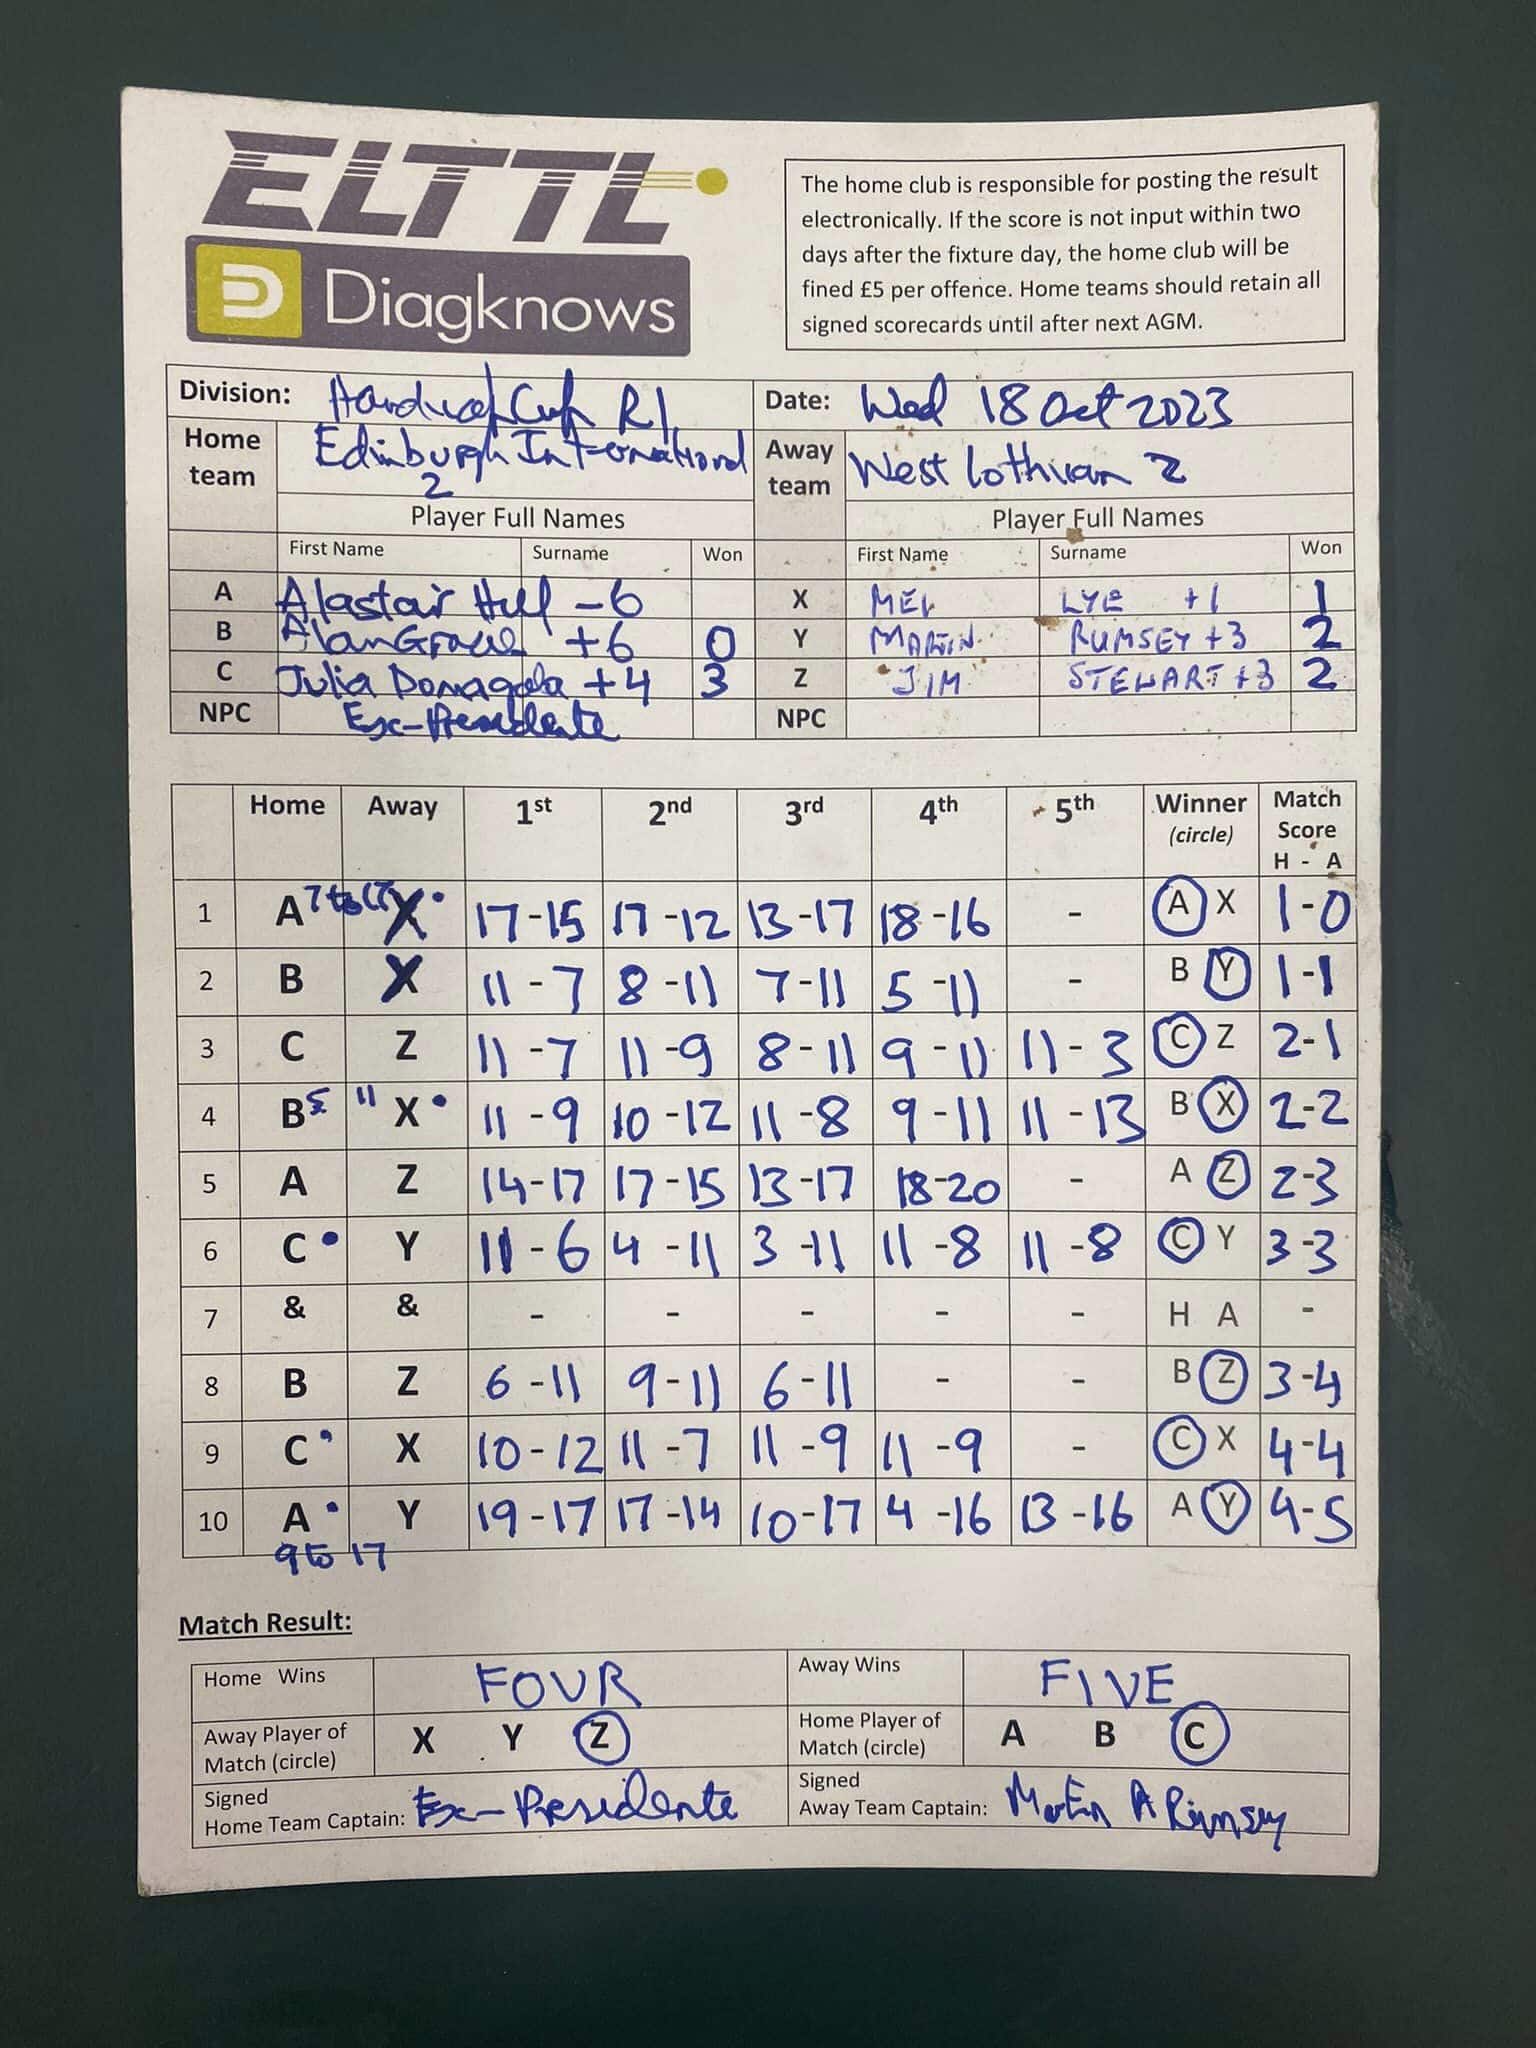 ELTTL
Diagknows
The home club is responsible for posting the result
electronically. If the score is not input within two
days after the fixture day, the home club will be
fined £5 per offence. Home teams should retain all
signed scorecards until after next AGM.
Division: Cup R1 Date: Wed 18 Oct 2023
Home team Edinburgh International 2 Away team West Lothian 2
Player Full Names Player Full Names
First Name Surname Won First Name Surname Won
A Alastair -6 X MEL LYE +1 1
B Alan +6 0 Y MARTIN RUMSEY +3 2
C Julia +4 3 Z JIM STEWART +3 2
NPC Ex-Presidente NPC
Home Away 1st 2nd 3rd 4th 5th Winner (circle) Match Score H - A
1 A 7 to 17 X 17-15 17-12 13-17 18-16 - A X 1-0
2 B X 11-7 8-11 7-11 5-11 - B Y 1-1
3 C Z 11-7 11-9 8-11 9-11 11-3 C Z 2-1
4 B 5 11 X 11-9 10-12 11-8 9-11 11-13 B X 2-2
5 A Z 14-17 17-15 13-17 18-20 - A Z 2-3
6 C Y 11-6 4-11 3-11 11-8 11-8 C Y 3-3
7 & & - - - - - H A -
8 B Z 6-11 9-11 6-11 - - B Z 3-4
9 C X 10-12 11-7 11-9 11-9 - C X 4-4
10 A Y 19-17 17-14 10-17 4-16 13-16 A Y 4-5
9 to 17
Match Result:
Home Wins FOUR Away Wins FIVE
Away Player of Match (circle) X Y Z Home Player of Match (circle) A B C
Signed Home Team Captain: Ex-Presidente Signed Away Team Captain: Martin A Rumsey